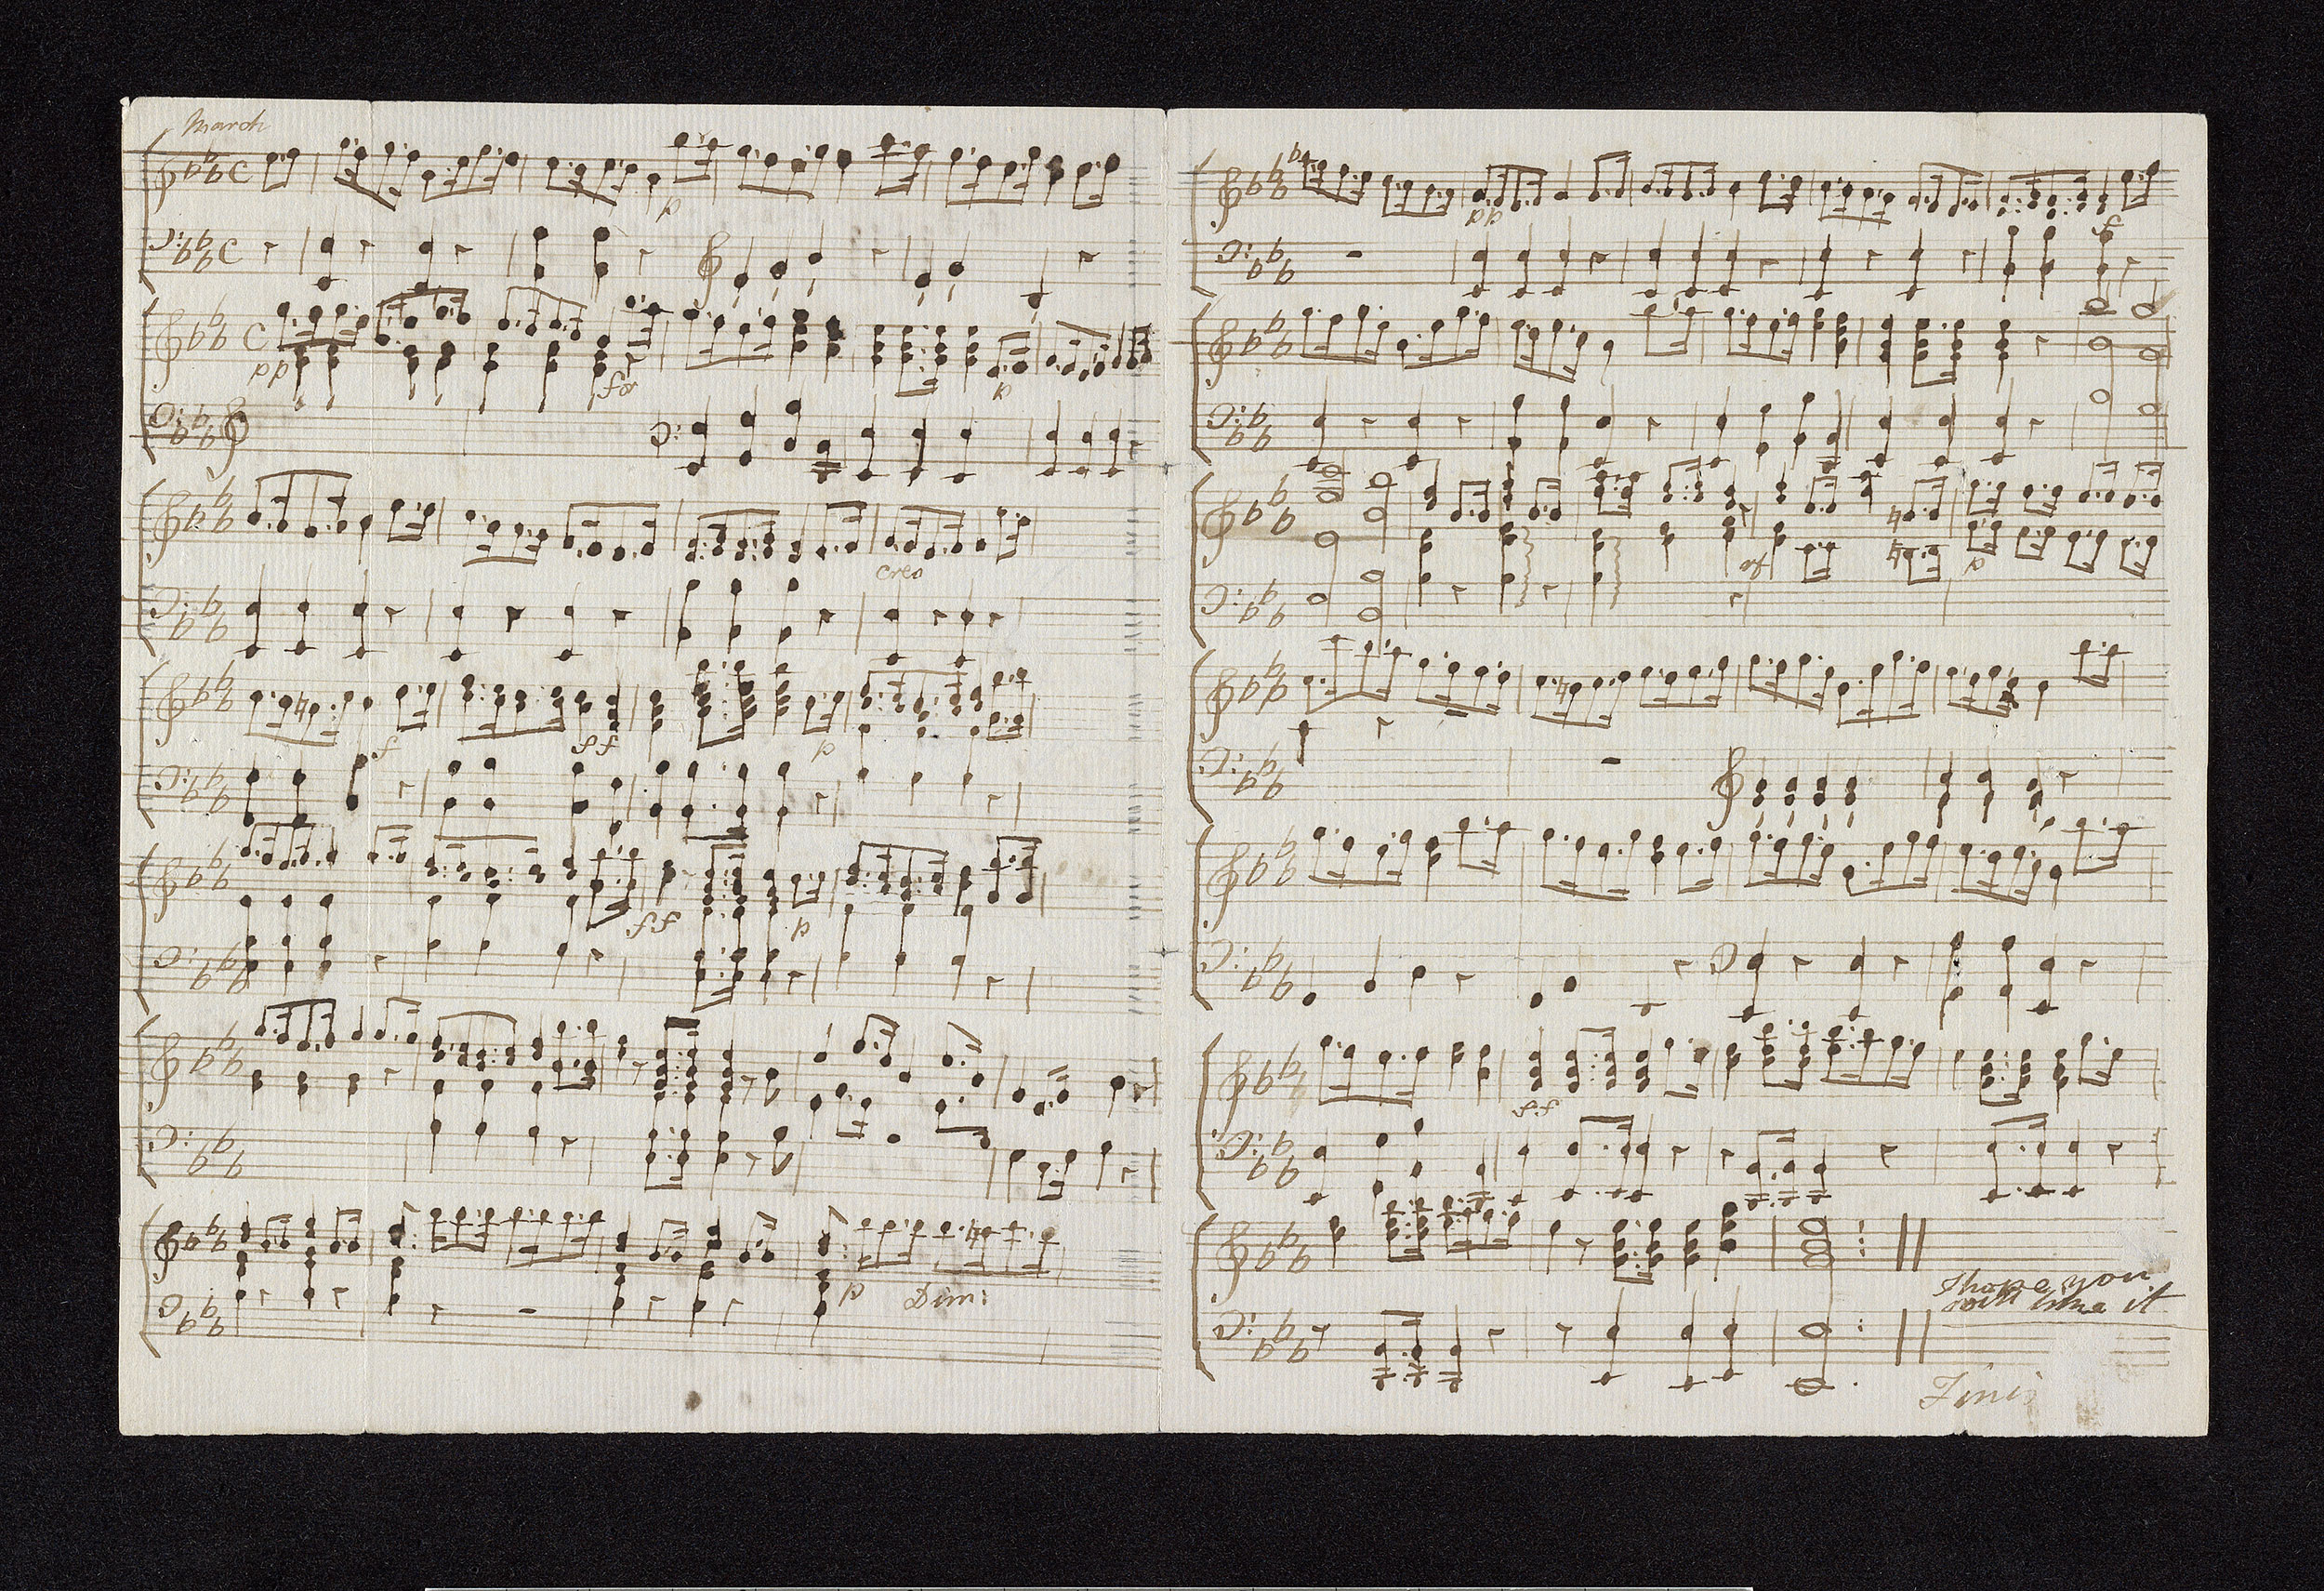 March
C
C
p
C
pp
fo
p
cres
f
ff
p
ff
p
p
Dim:
pp
f
of
p
ff
I hope you
will like it
Finis